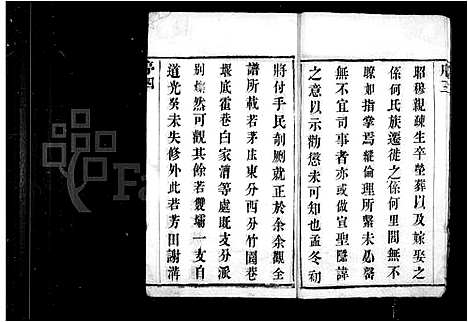 昭穆親疎生卒塋葬以及嫁娶之
係何氏族遷徙之係何里閭無不
瞭如指掌焉維倫理所繫未必畧
無不宜司事者亦或做宣聖隱諱
之意以示勸懲未可知也孟冬初
將付手民剞劂就正於余余觀全
譜所載若茅庄東分西分竹園巷
堰底霍巷白家溝等處既支分派
別燦然可觀其餘若雙壩一支自
道光癸未失修外此若芳田謝溝
序四